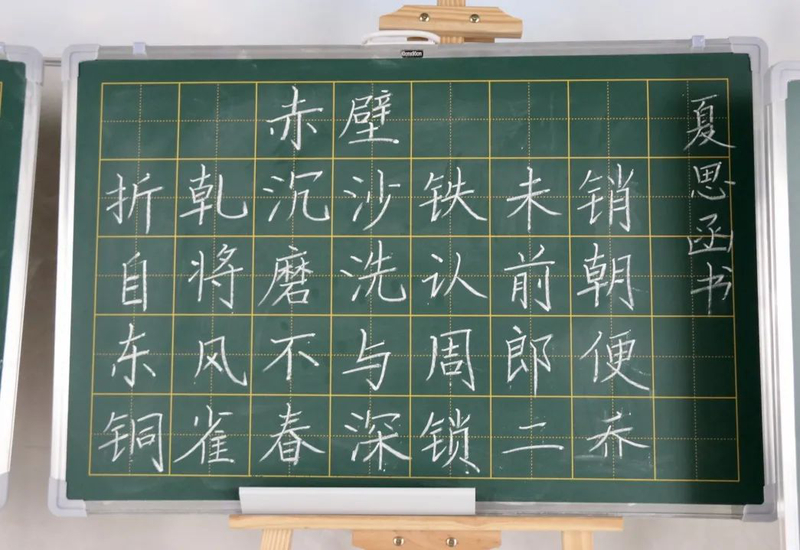 赤壁
折乾沉沙铁未销
自将磨洗认前朝
东风不与周郎便
铜雀春深锁二乔
夏思函书